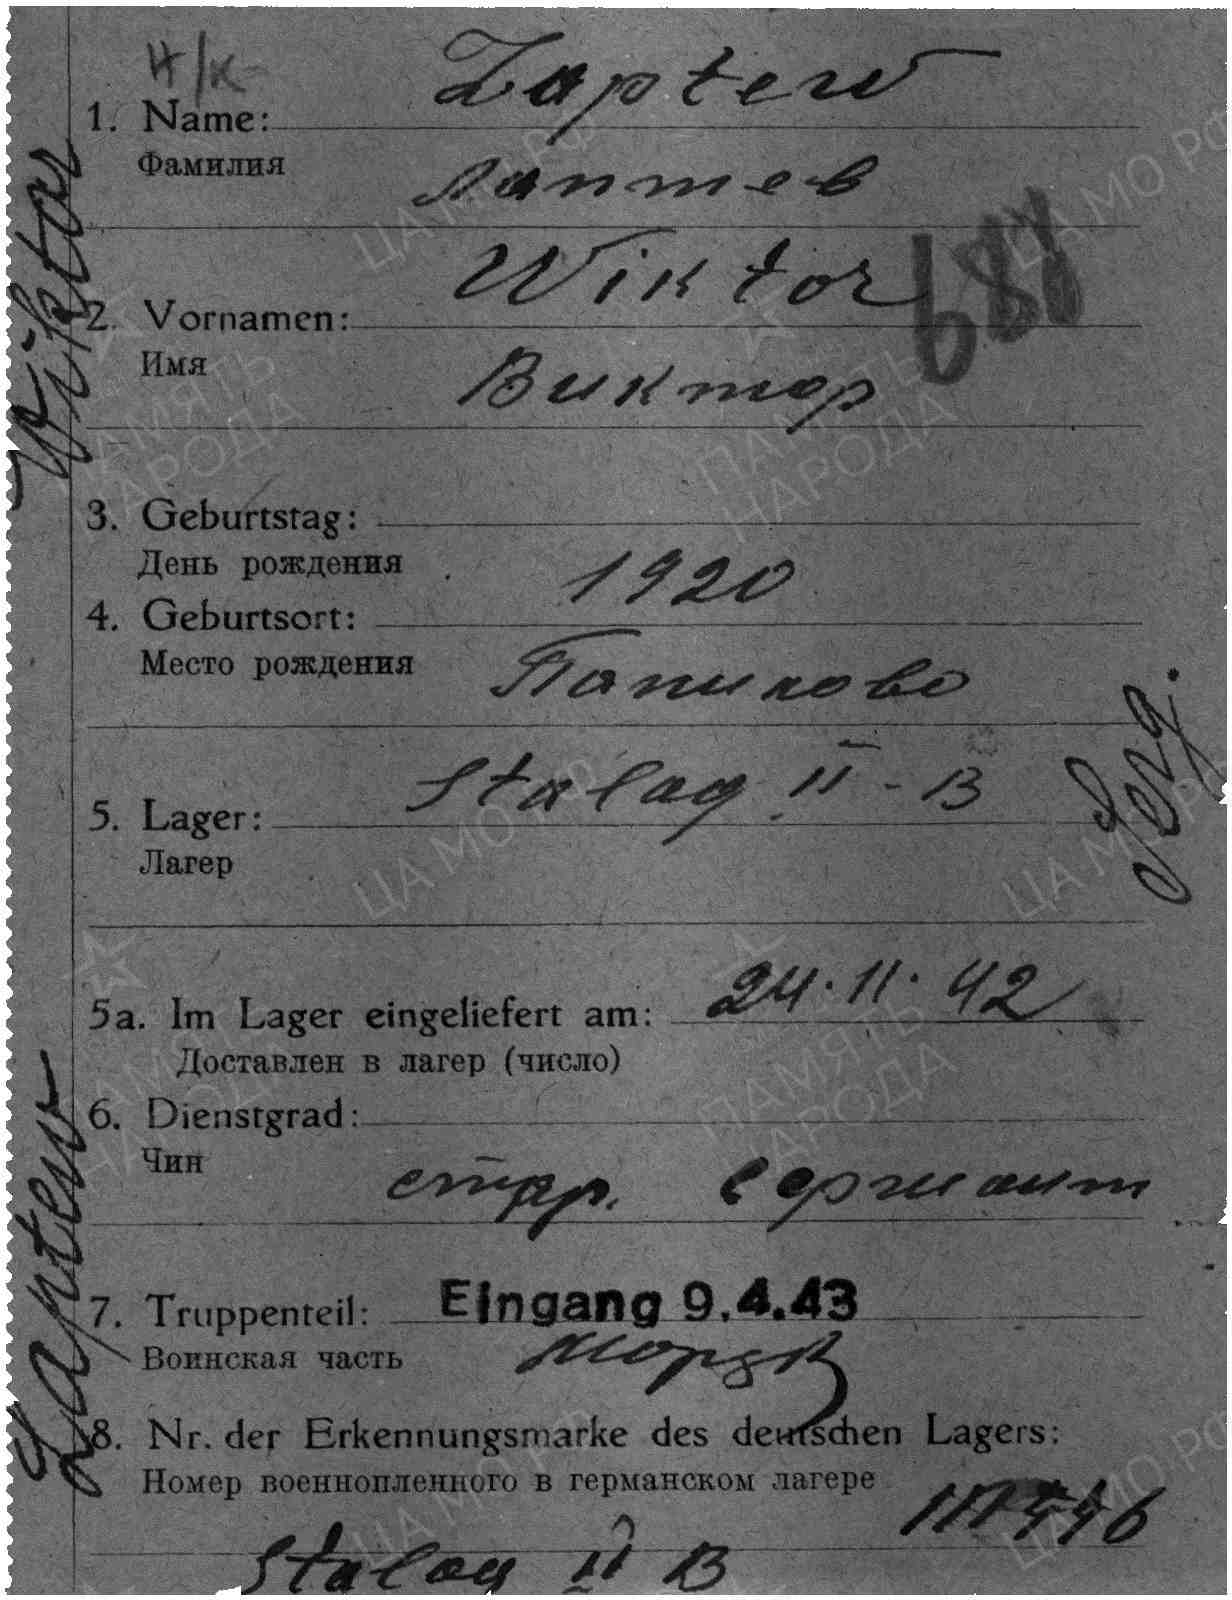 н/к
Laptew
1. Name:
Фамилия
Лаптев
Wiktor
688
2. Vornamen:
Имя
Виктор
3. Geburtstag:
День рождения
1920
4. Geburtsort:
Место рождения
Stalag II-B
5. Lager:
Лагер
5a. Im Lager eingeliefert am: 24.11.42
Доставлен в лагер (число)
6. Dienstgrad:
Чин
стар. сержант
7. Truppenteil: Eingang 9.4.43
Воинская часть
8. Nr. der Erkennungsmarke des deutschen Lagers:
Номер военнопленного в германском лагере
Stalag II B
Laptew Wiktor
ЦА МО РФ
ПАМЯТЬ
НАРОДА